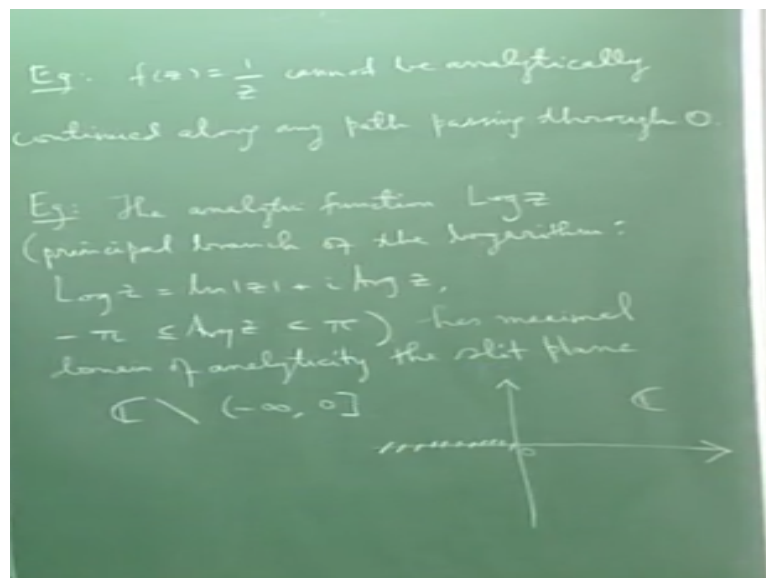 Eg:. f(z) = 1/z cannot be analytically
continued along any path passing through 0.
Eg: The analytic function Log z
(principal branch of the logarithm:
Log z = ln|z| + i Arg z,
-π ≤ Arg z < π) has maximal
domain of analyticity the slit plane
ℂ \ (-∞, 0]
ℂ
0